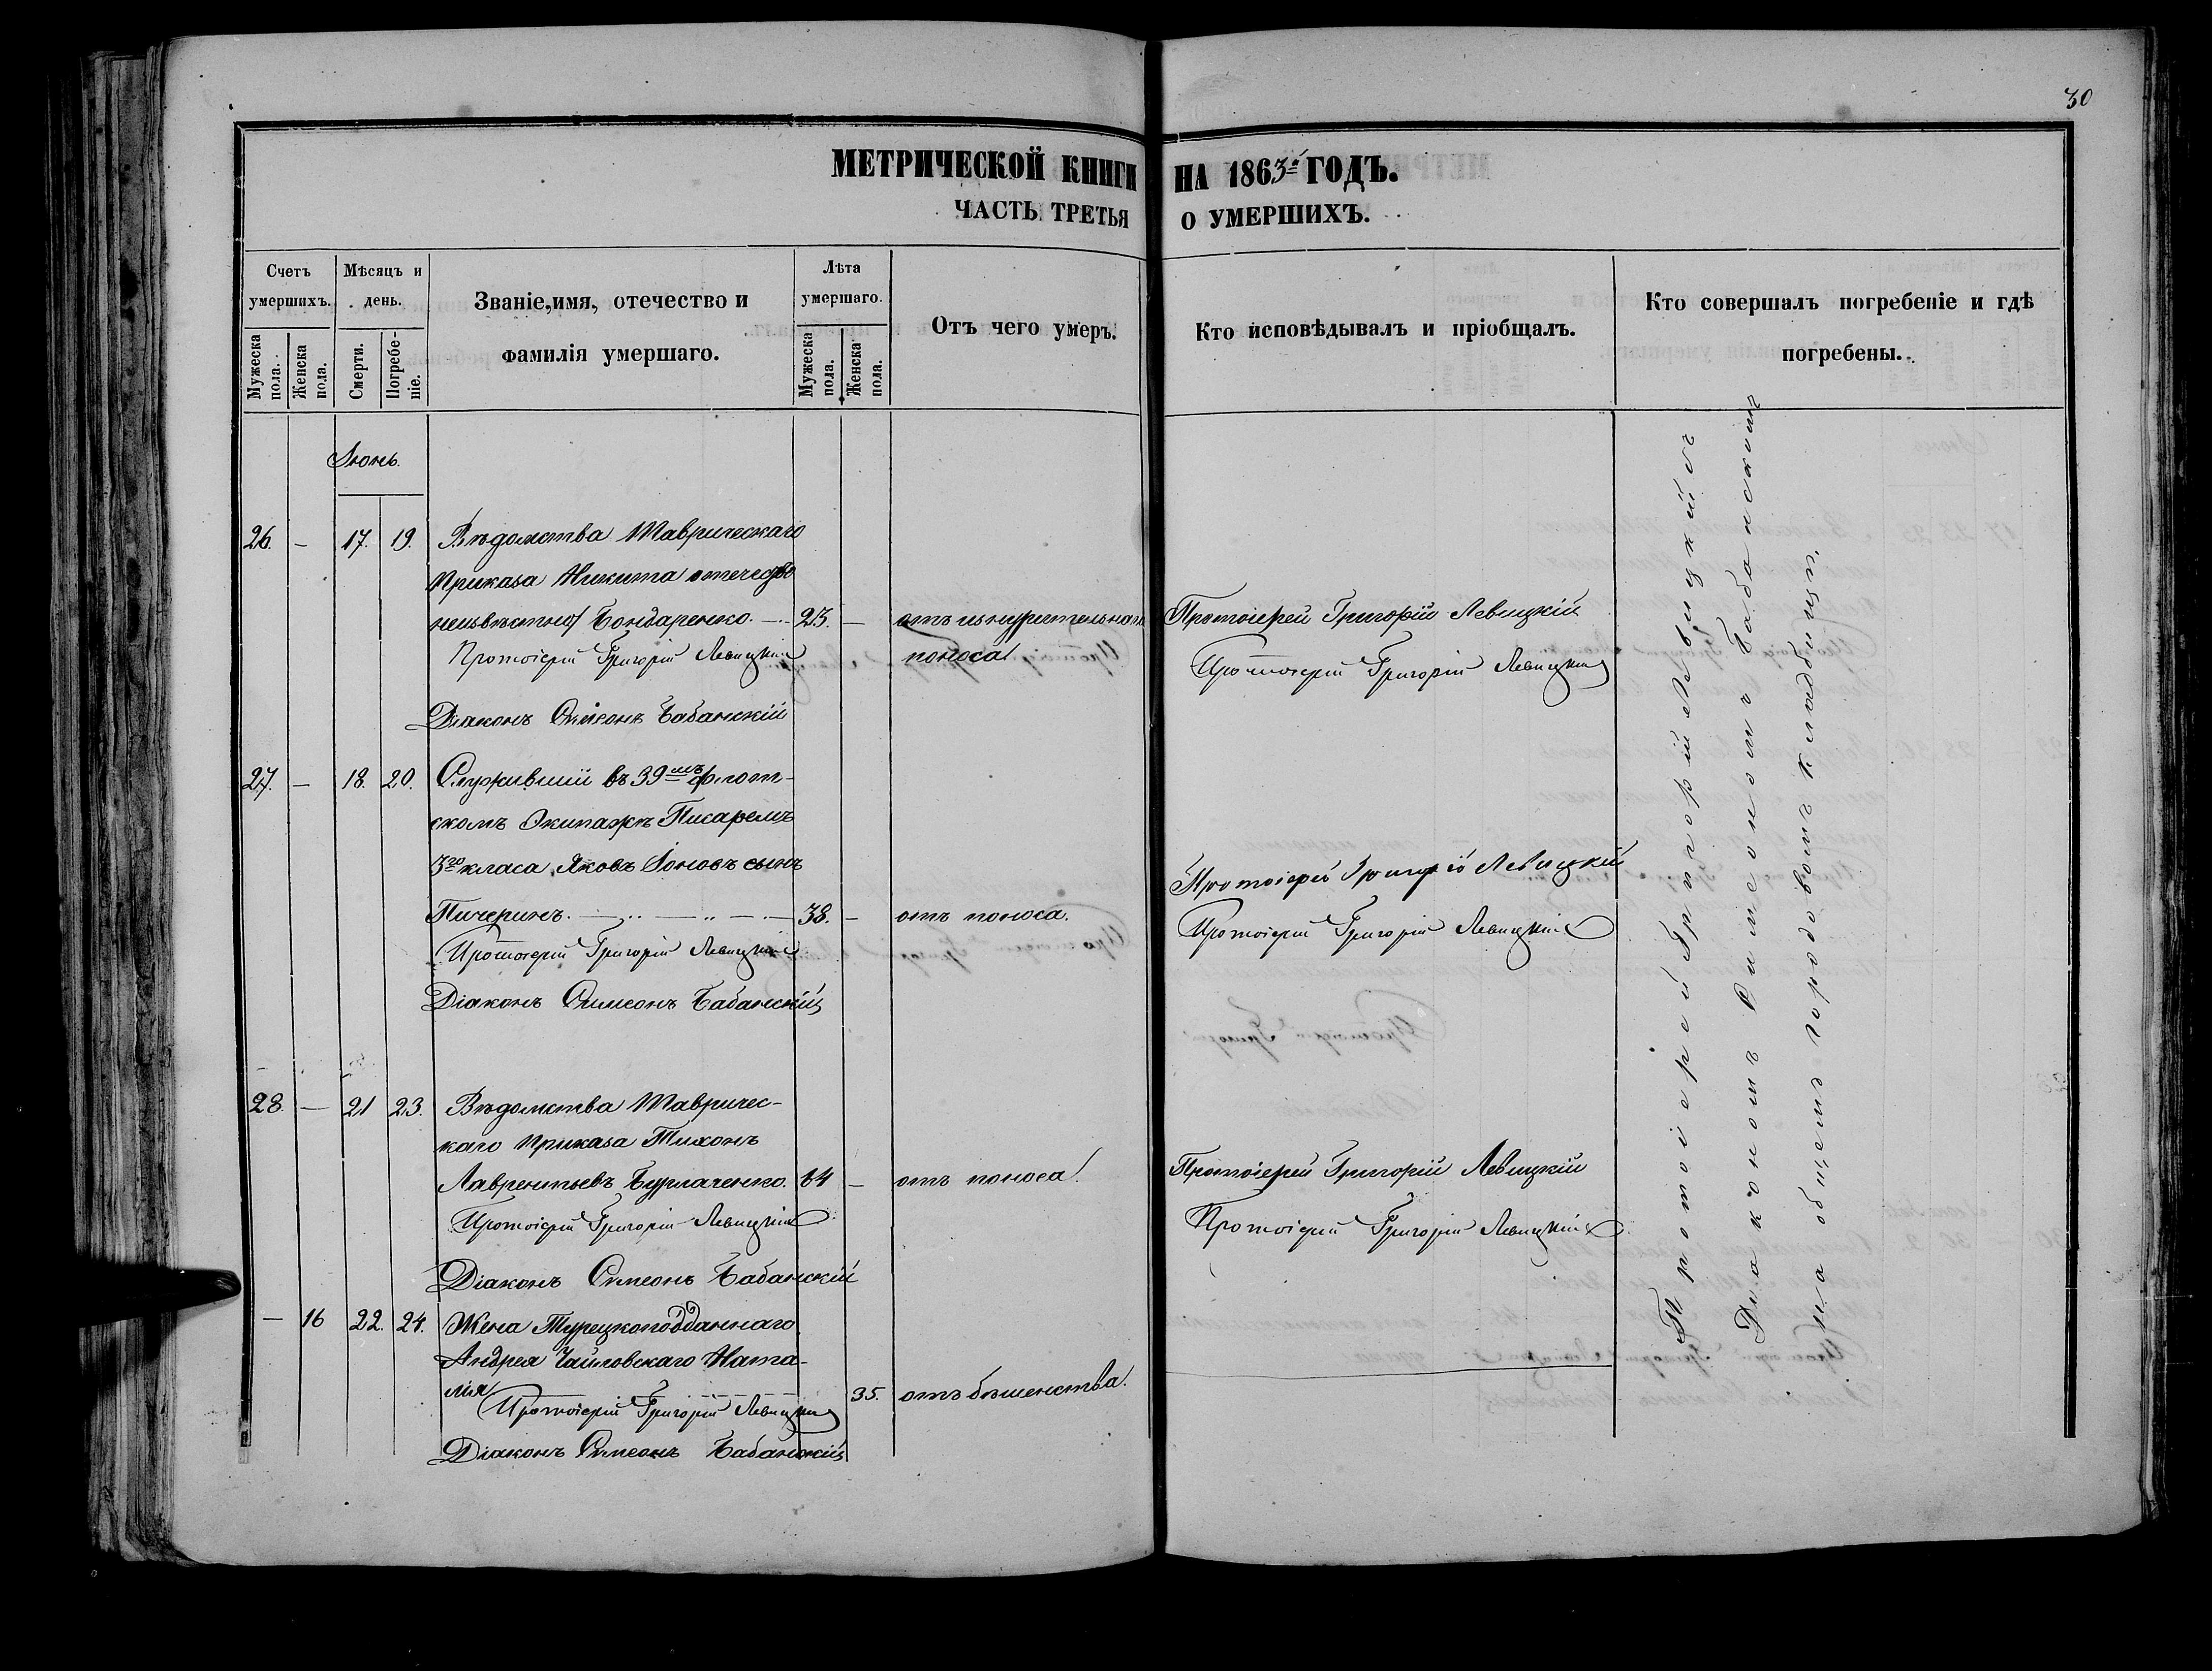 30
МЕТРИЧЕСКОЙ КНИГИ НА 1863й ГОДЪ.
ЧАСТЬ ТРЕТЬЯ О УМЕРШИХЪ.
Счетъ умершихъ.
Мужеска пола.
Женска пола.
Мѣсяцъ и день.
Смерти.
Погребеніе.
Званіе, имя, отечество и
фамилія умершаго.
Лѣта умершаго.
Мужеска пола.
Женска пола.
Отъ чего умеръ.
Кто исповѣдывалъ и пріобщалъ.
Кто совершалъ погребеніе и гдѣ
погребены.
Іюнь.
26. – 17. 19. Вѣдомства Таврическаго
Приказа Никита отечество
неизвѣстно Бондаренко. 23. – отъ изнурительнаго
поноса
Протоіерей Григорій Левицкій
Протоіерей Григорій Левицкій
Протоіерей Григорій Левицкій
Діаконъ Симеонъ Бабанскій
27. – 18. 20. Служившій въ 39мъ флот-
скомъ Экипажѣ Писаремъ
3го класа Яковъ Іоновъ сынъ
Пичеринъ. 38. – отъ поноса.
Протоіерей Григорій Левицкій
Протоіерей Григорій Левицкій
Протоіерей Григорій Левицкій
Діаконъ Симеонъ Бабанскій
28. – 21 23. Вѣдомства Тавричес-
каго Приказа Тихонъ
Лаврентьевъ Бурлаченко. 64 – отъ поноса.
Протоіерей Григорій Левицкій
Протоіерей Григорій Левицкій
Протоіерей Григорій Левицкій
Діаконъ Симеонъ Бабанскій
– 16 22. 24. Жена Турецкоподданнаго
Андрея Чайловскаго Ната-
лія 35. отъ бѣшенства.
Протоіерей Григорій Левицкій
Діаконъ Симеонъ Бабанскій
Протоіерей Григорій Левицкій съ
Діакономъ Симеономъ Бабанскимъ
на общемъ городовомъ кладбищѣ.